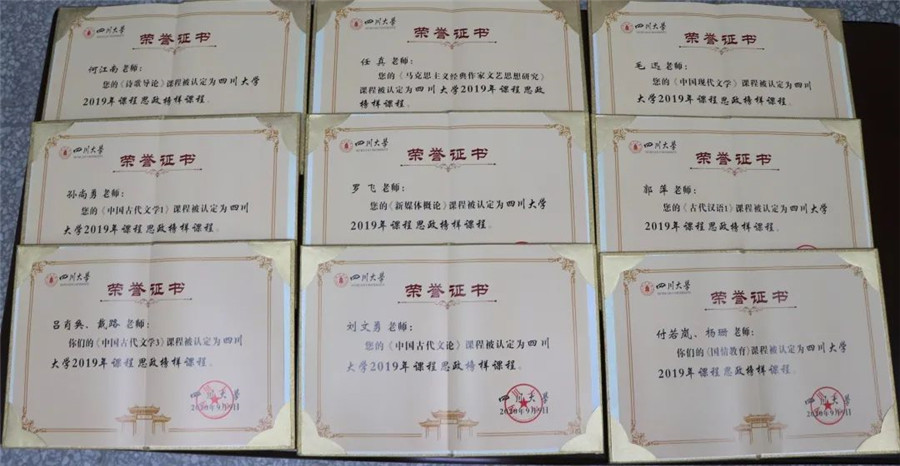 四川大学
荣誉证书
何江南老师：
您的《诗歌导论》课程被认定为四川大学
2019年课程思政榜样课程。
四川大学
荣誉证书
任真老师：
您的《马克思主义经典作家文艺思想研究》
课程被认定为四川大学2019年课程思政
榜样课程。
四川大学
荣誉证书
毛迅老师：
您的《中国现代文学》课程被认定为四川
大学2019年课程思政榜样课程。
四川大学
荣誉证书
孙尚勇老师：
您的《中国古代文学1》课程被认定为四川
大学2019年课程思政榜样课程。
四川大学
荣誉证书
罗飞老师：
您的《新媒体概论》课程被认定为四川大学
2019年课程思政榜样课程。
四川大学
荣誉证书
郭萍老师：
您的《古代汉语1》课程被认定为四川大学
2019年课程思政榜样课程。
四川大学
荣誉证书
吕肖奂、戴路老师：
你们的《中国古代文学3》课程被认定为四川
大学2019年课程思政榜样课程。
四川大学
2020年9月9日
四川大学
荣誉证书
刘文勇老师：
您的《中国古代文论》课程被认定为四川
大学2019年课程思政榜样课程。
四川大学
2020年9月9日
四川大学
荣誉证书
付若岚、杨珊老师：
你们的《国情教育》课程被认定为四川大学
2019年课程思政榜样课程。
四川大学
2020年9月9日